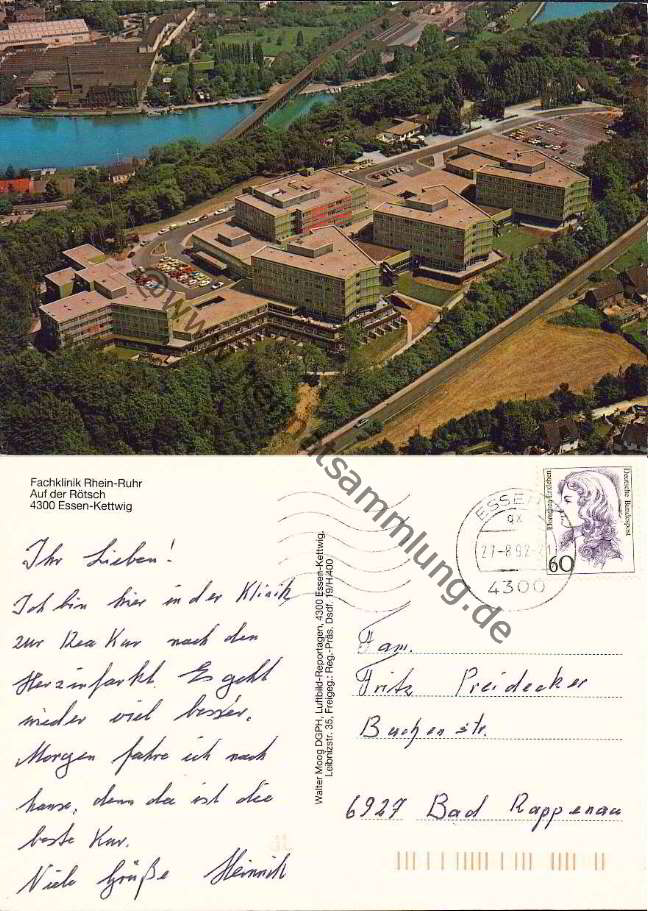 @www.heimatsammlung.de
Fachklinik Rhein-Ruhr
Auf der Rötsch
4300 Essen-Kettwig
Ihr Lieben!
Ich bin hier in der Klinik
zur Rea Kur nach den
Herzinfarkt. Es geht
wieder viel besser.
Morgen fahre ich nach
hause, denn da ist die
beste Kur.
Viele Grüße Heinrich
Walter Moog DGPH, Luftbild-Reportagen, 4300 Essen-Kettwig,
Leibnizstr. 35, Freigeg.: Reg.-Präs. Dsdf. 19/H/400
ESSEN
4300
Deutsche Bundespost
60
Fam.
Fritz Preidecker
Buchenstr.
6927 Bad Rappenau